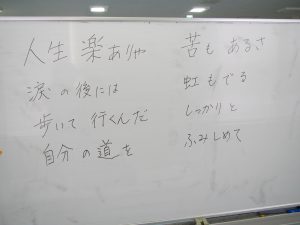 人生 楽ありゃ 苦も あるさ
涙 の 後には 虹も でる
歩いて 行くんだ しっかりと
自分 の 道を ふみしめて